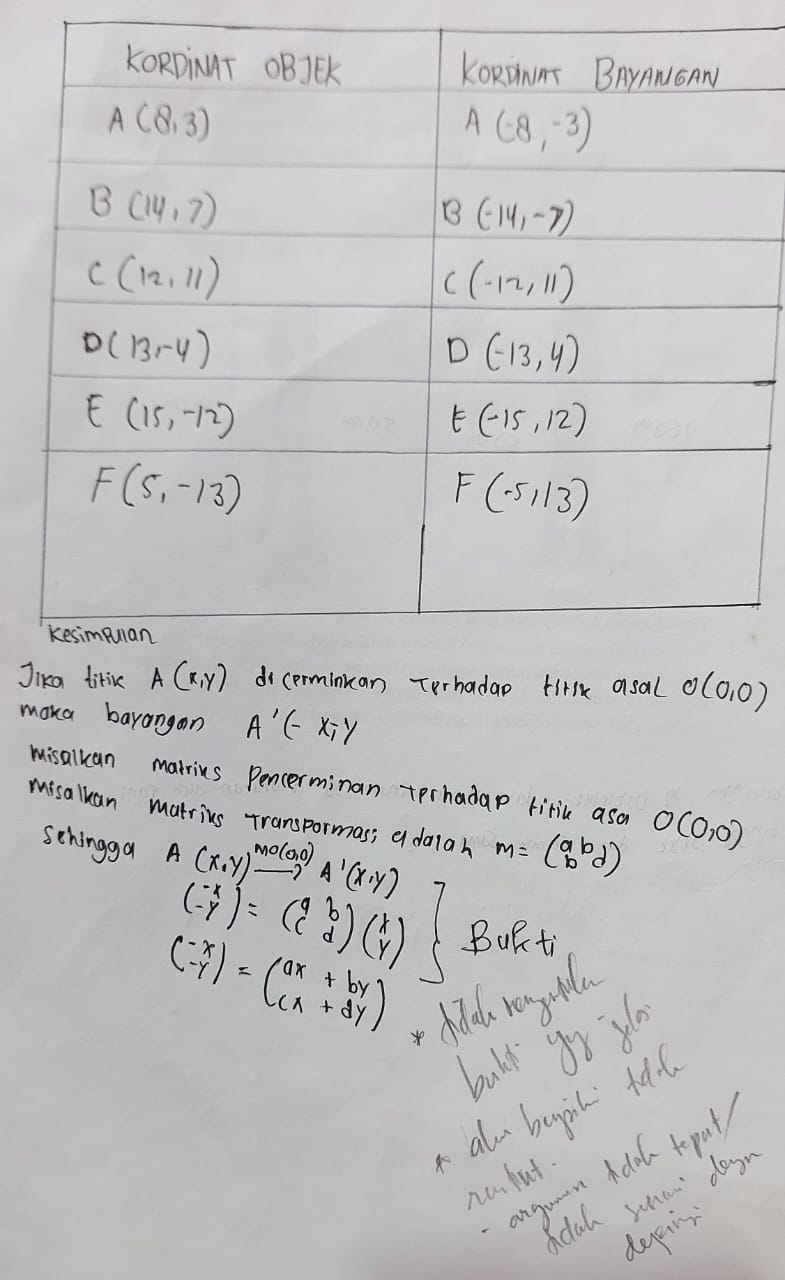 KORDINAT OBJEK KORDINAT BAYANGAN
A (8,3) A (-8,-3)
B (14,7) B (-14,-7)
C (12,11) C (-12,11)
D (13,-4) D (-13,4)
E (15,-12) E (-15,12)
F (5,-13) F (-5,13)
Kesimpulan
Jika titik A (x,y) di cerminkan Terhadap titik asal O(0,0)
maka bayangan A'(- x,-y
misalkan matriks Pencerminan Terhadap titik asa O(0,0)
misalkan matriks Transpormasi adalah m= (a b b d)
sehingga A (x,y) mo(0,0) → A'(x,y)
(-x -y) = (a b c d) (x y) } Bukti
(-x -y) = (ax + by cx + dy)
* tidak
bukti yg jelas
* alur tidak
runtut.
- argumen tidak tepat/
tidak sesuai dengan